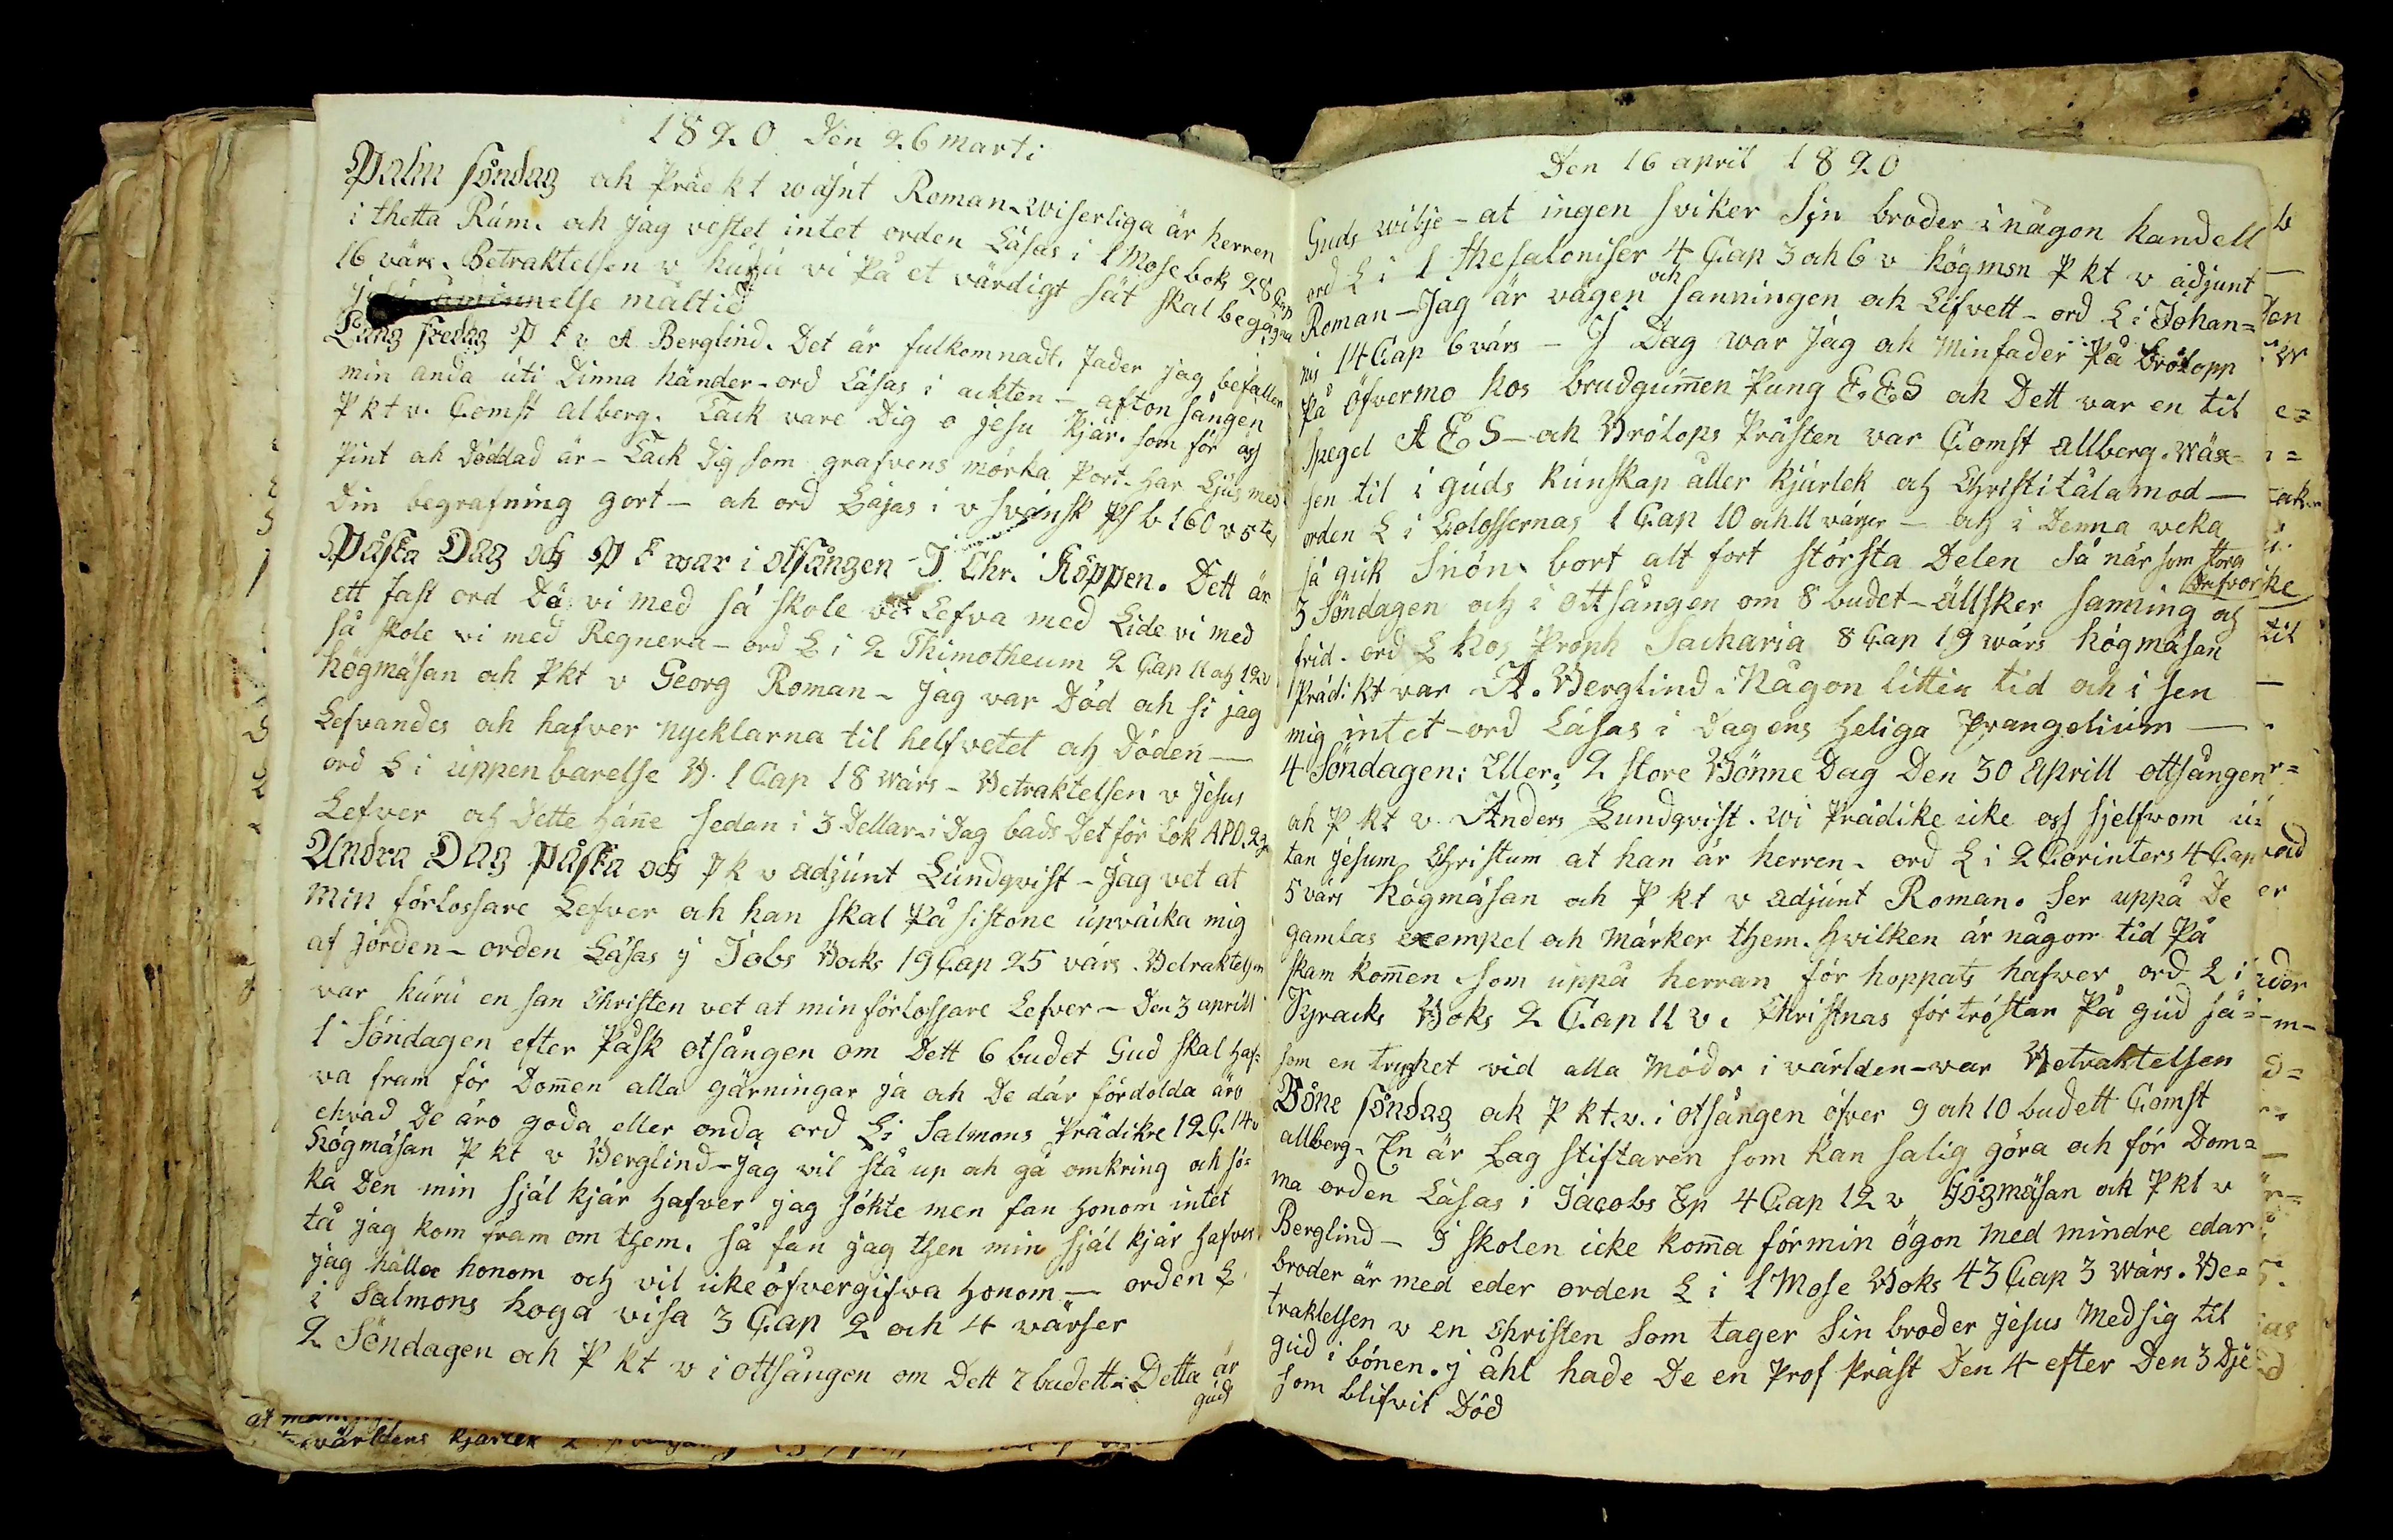 1820 Den 26 marti
Palm söndag och Prädkt wäsnt Roman. wiserliga är herren
i thetta Rúm. och jag vestet intet orden Läsas i 1 Mose bok 28 Cap
16 värs. Betraktelsen v húrú vi På et värdigt sät skal begå
åminnelse måltid
Lång fredag P k v A Berglind. Det är fulkomnadt. fader jag befaller
min anda úti Dinna händer - ord Läsas i ackten - afton sången
P kt v. Comst alberg. Tack vare Dig o jesu kjär. som för oss
Pint och Döddad är - Tack Dig som grafvens mörka Port. har Ljus med
Din begrafning gort - och ord Läsas i v svänsk Ps b 160 v 5te
Påska Dag och P k war i otsången J. Chr. Köppen. Dett är
ett fast ord Dä vi med så skole vi Lefva med Lide vi med
så skole vi med Regnera - ord L i 2 Thimotheum 2 Cap 11 och 12 v
högmäsan och Pkt v Georg Roman - jag var Död och si jag
Lefvandes och hafver nycklarna til helfvetet och Döden —
ord L i úppenbarelse B. 1 Cap 18 wärs - Betraktelsen v jesus
Lefver och Dette häñe sedan i 3 Dellar. i Dag bads Det för Lok APD. 2 g
Andra Dag påska och Pk v adjúnt Lúndqvist - jag vet at
min förlossare Lefver och han skal På sistone úpväcka mig
af jorden - orden Läsas ÿ Jobs Bocks 19 Cap 25 värs. Betraktelsen
var húrú en san Christen vet at min förlossare Lefver - Den 3 aprill
1 Söndagen efter Påsk otsången om Dett 6 budet Gud skal haf=
va fram för Dom̃en alla gärningar ja och De där fördolda äro
ehvad De äro goda eller onda ord Li Salmons Prädikre 12 C. 14 v
Högmäsan P kt v Berglind - jag vil stå up och gå omkring och sö=
ka Den min själ kjär hafver jag sökte men fan honom intet
tå jag kom fram om them. så fan jag then min själ kjär hafver
jag håller honom och vil icke öfvergifva honom — orden L
i Salmons höga visa 3 Cap 2 och 4 värser
2 Söndagen och P kt v i ottsången om Dett 7 budett - Detta är
guds
Den 16 april 1820
Guds wilje - at ingen sviker Sin broder i någon handell
ord L i 1 thesaloniser 4 Cap 3 och 6 v högmsn P kt v adjunt
Roman - Jag är vägen och sanningen och Lifvett - ord L i Johan=
nis 14 Cap 6 värs - I Dag war jag och Min fader På Brölopp
På öfvermo hos brudgúm̃en Pung E. E S och Dett var en til
spegel A E S - och Brölops Prästen var Comst allberg. wäx=
sen til i gúds kúnskap aller kjärlek och Christi tålamod —
orden L i Colossernas 1 Cap 10 och 11 värser — och i Denna veka
så gick Snön. bort alt fort största Delen så när som storg
Drifvor icke
3 Söndagen och i ottsången om 8 budet - ällsker sanning och
frid. ord L hos Proph Sacharia 8 Cap 19 wärs högmäsan
Prädikt var A. Berglind. Någon litten tid och i sen
mig intet - ord Läsas i Dagens heliga Evangelium —
4 Söndagen: Eller: 2 store Bönne Dag Den 30 Aprill ottsången
och P kt v. Anders Lundqvist. wi Prädike icke oss sjelfwom ú=
tan jesum Christum at han är herren. ord L i 2 Corinters 4 Cap
5 värs högmäsan och P kt v adjúnt Roman. Ser uppå De
gamlas exempel och Märker them. hvilken är någon tid På
skam kom̃en som uppå herran för hoppats hafver ord L i
Syracks Boks 2 Cap 11 v. Christnas förtröstan På gud så=
som en trychet vid alla Mödor i världen - war Betraktelsen
Böne söndag och P kt. v. i otsången öfver 9 och 10 budett Comst
allberg. En är Lag stiftaren som kan salig göra och för Dom=
ma orden Läsas i Jacobs Ep 4 Cap 12 v Högmäsan och Pkt v
Berglind - I skolen icke kom̃a för min ögon med mindre edar
broder är med eder orden L i 1 Mose Boks 43 Cap 3 wärs. Be=
traktelsen v en Christen som tager Sin broder jesus Med sig til
gud i bönen. j åhl hade De en Prof Präst Den 4 efter Den 3 Dje
som blifvit Död
världens kjärlek